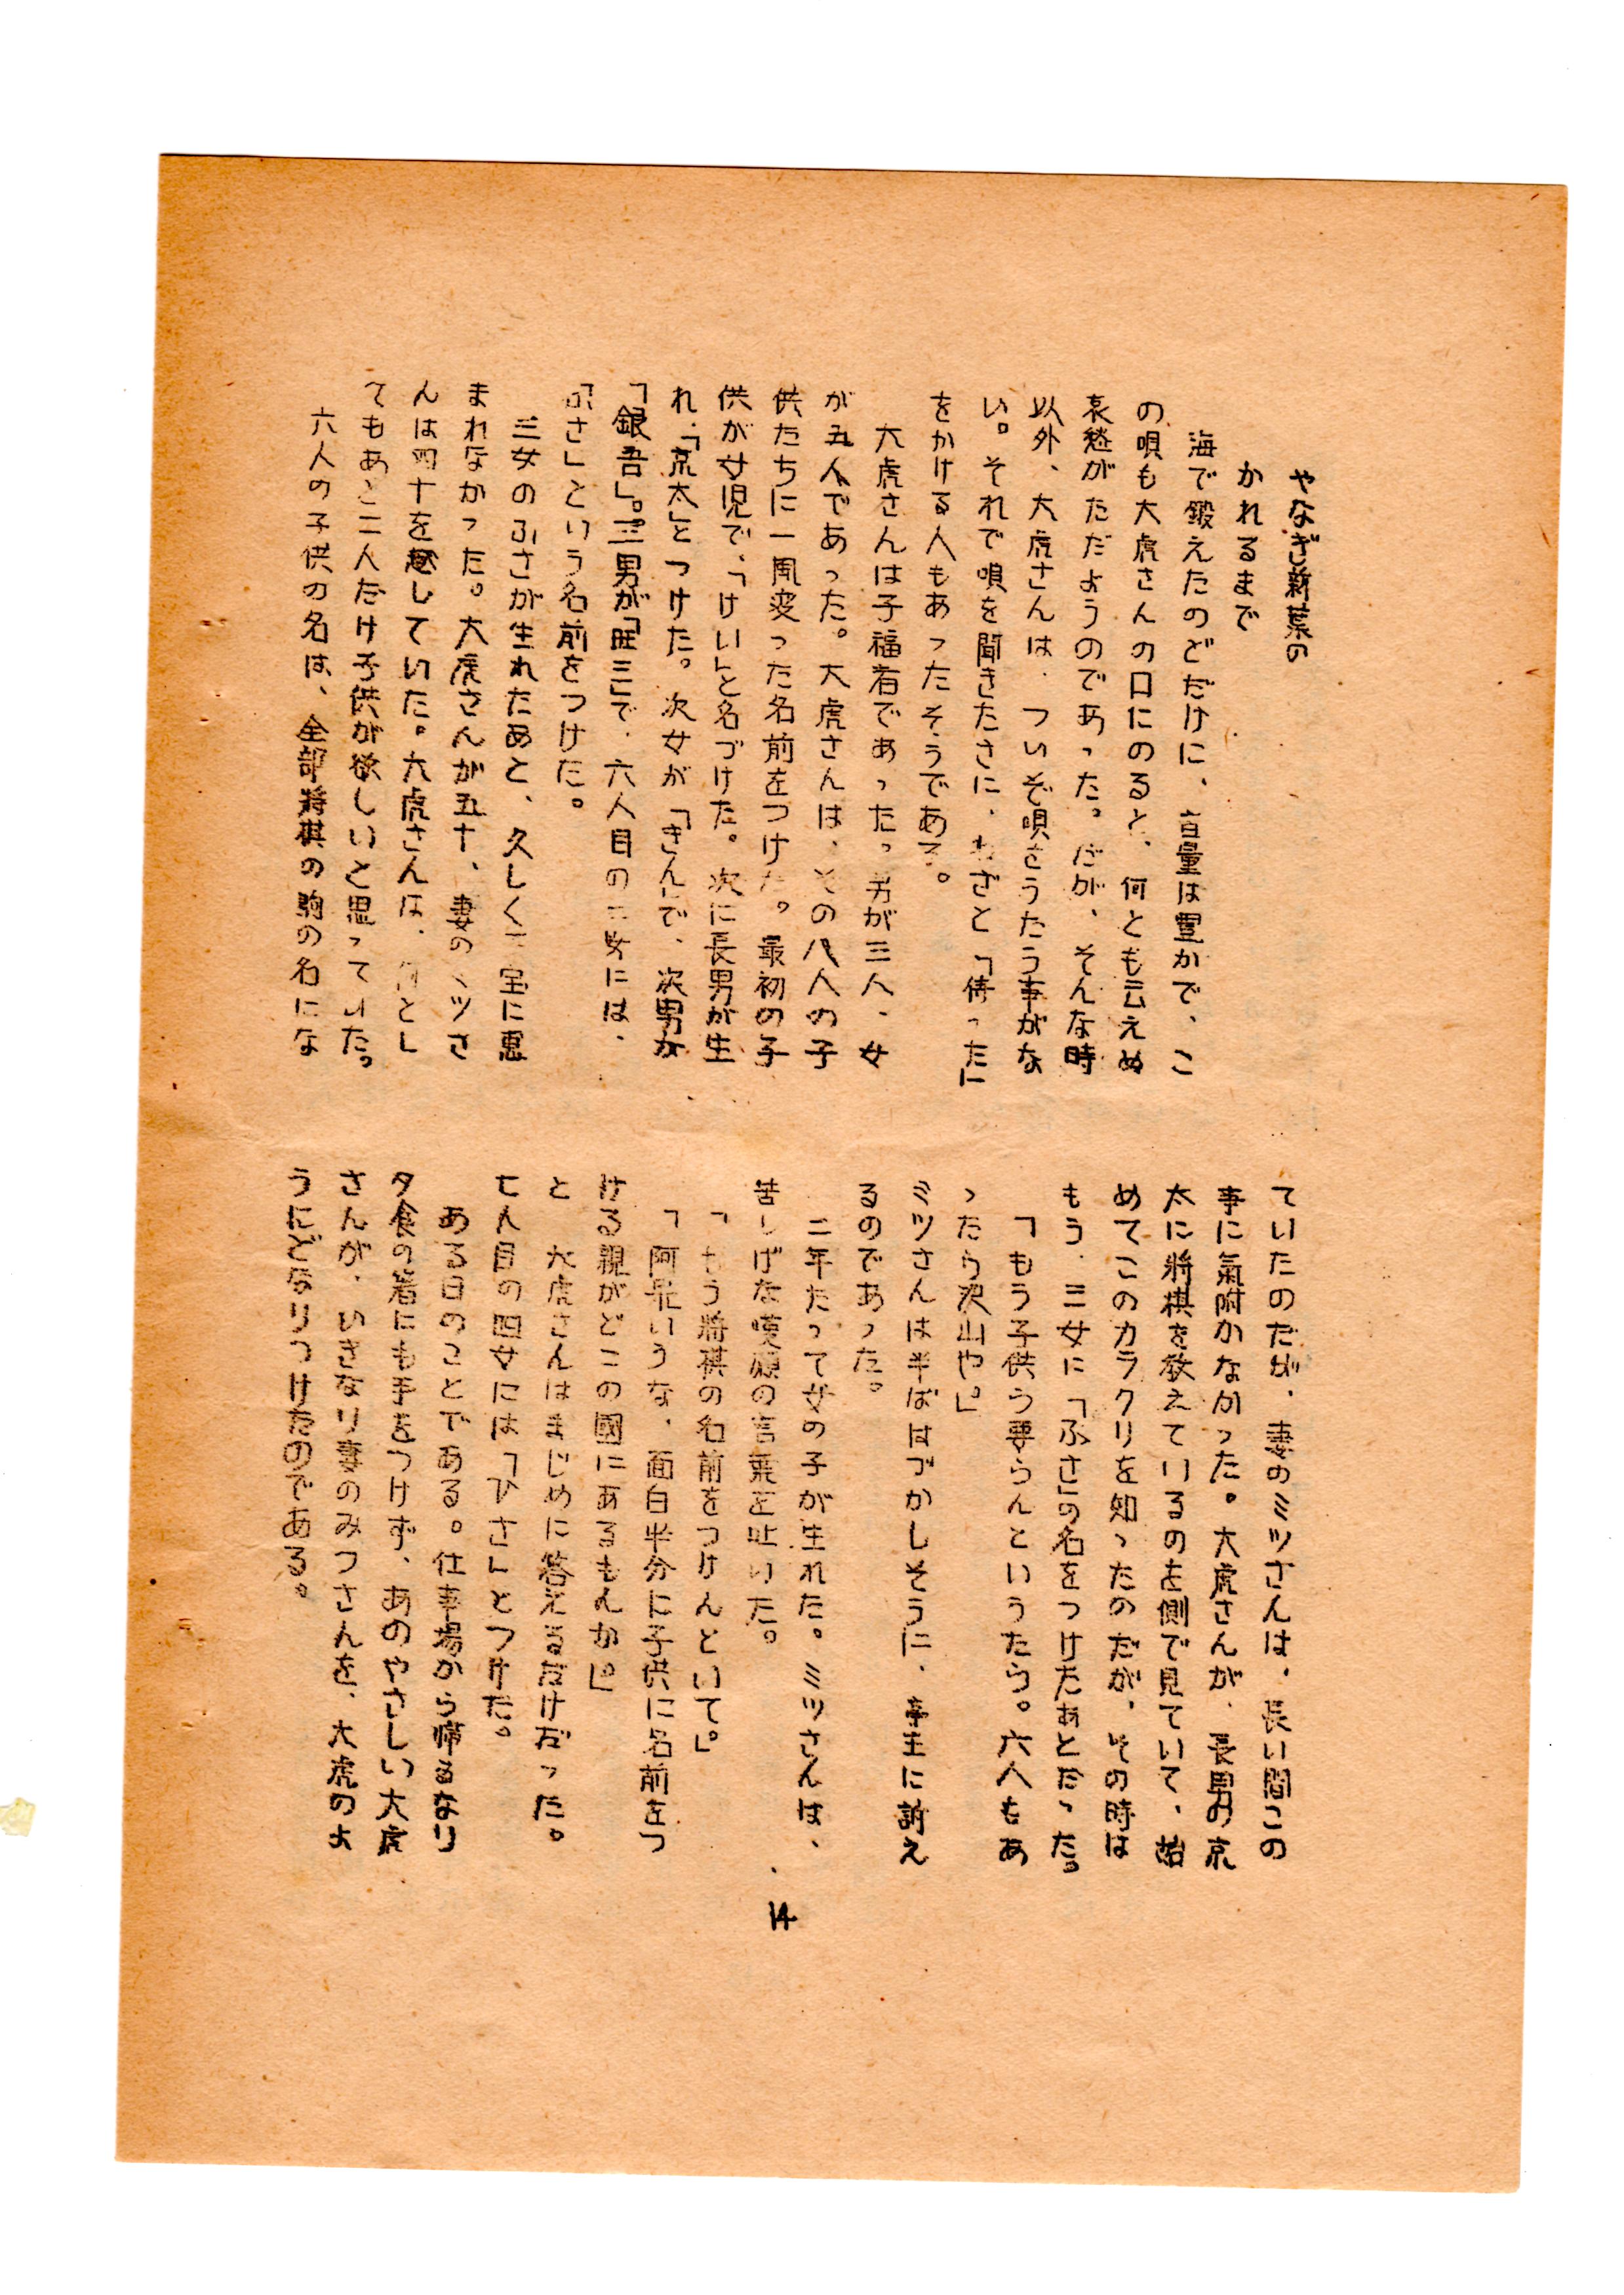 やなぎ新葉の
かれるまで
海で鍛えたのどだけに、音量は豊かで、こ
の唄も大虎さんの口にのると、何とも云えぬ
哀愁がただようのであった。だが、そんな時
以外、大虎さんは、ついぞ唄をうたう事がな
い。それで唄を聞きたさに、わざと「待った」
をかける人もあったそうである。
大虎さんは子福者であった。男が三人、女
が五人であった。大虎さんは、その八人の子
供たちに一風変った名前をつけた。最初の子
供が女児で、「けい」と名づけた。次に長男が生
れ、「京太」とつけた。次女が「きん」で、次男が
「銀吾」。三男が「旺三」で、六人目の三女には、
「ふさ」という名前をつけた。
三女のふさが生れたあと、久しく子宝に恵
まれなかった。大虎さんが五十、妻のミツさ
んは四十を越していた。大虎さんは、何とし
てもあと二人だけ子供が欲しいと思っていた。
六人の子供の名は、全部将棋の駒の名にな
ていたのだが、妻のミツさんは、長い間この
事に氣附かなかった。大虎さんが、長男の京
太に將棋を教えているのを側で見ていて、始
めてこのカラクリを知ったのだが、その時は
もう、三女に「ふさ」の名をつけたあとだった。
「もう子供う要らんというたら。六人もあ
ったら沢山や。」
ミツさんは半ばはづかしそうに、亭主に訴え
るのであった。
二年たって女の子が生れた。ミツさんは、
苦しげな嘆願の言葉を吐いた。
「もう將棋の名前をつけんといて。」
「阿呆いうな、面白半分に子供に名前をつ
ける親がどこの國にあるもんか。」
と 大虎さんはまじめに答える丈けだった。
七人目の四女には「ひさ」とつけた。
ある日のことである。仕事場から帰るなり
夕食の箸にも手をつけず、あのやさしい大虎
さんが、いきなり妻のみつさんを、大虎のよ
うにどなりつけたのである。
14